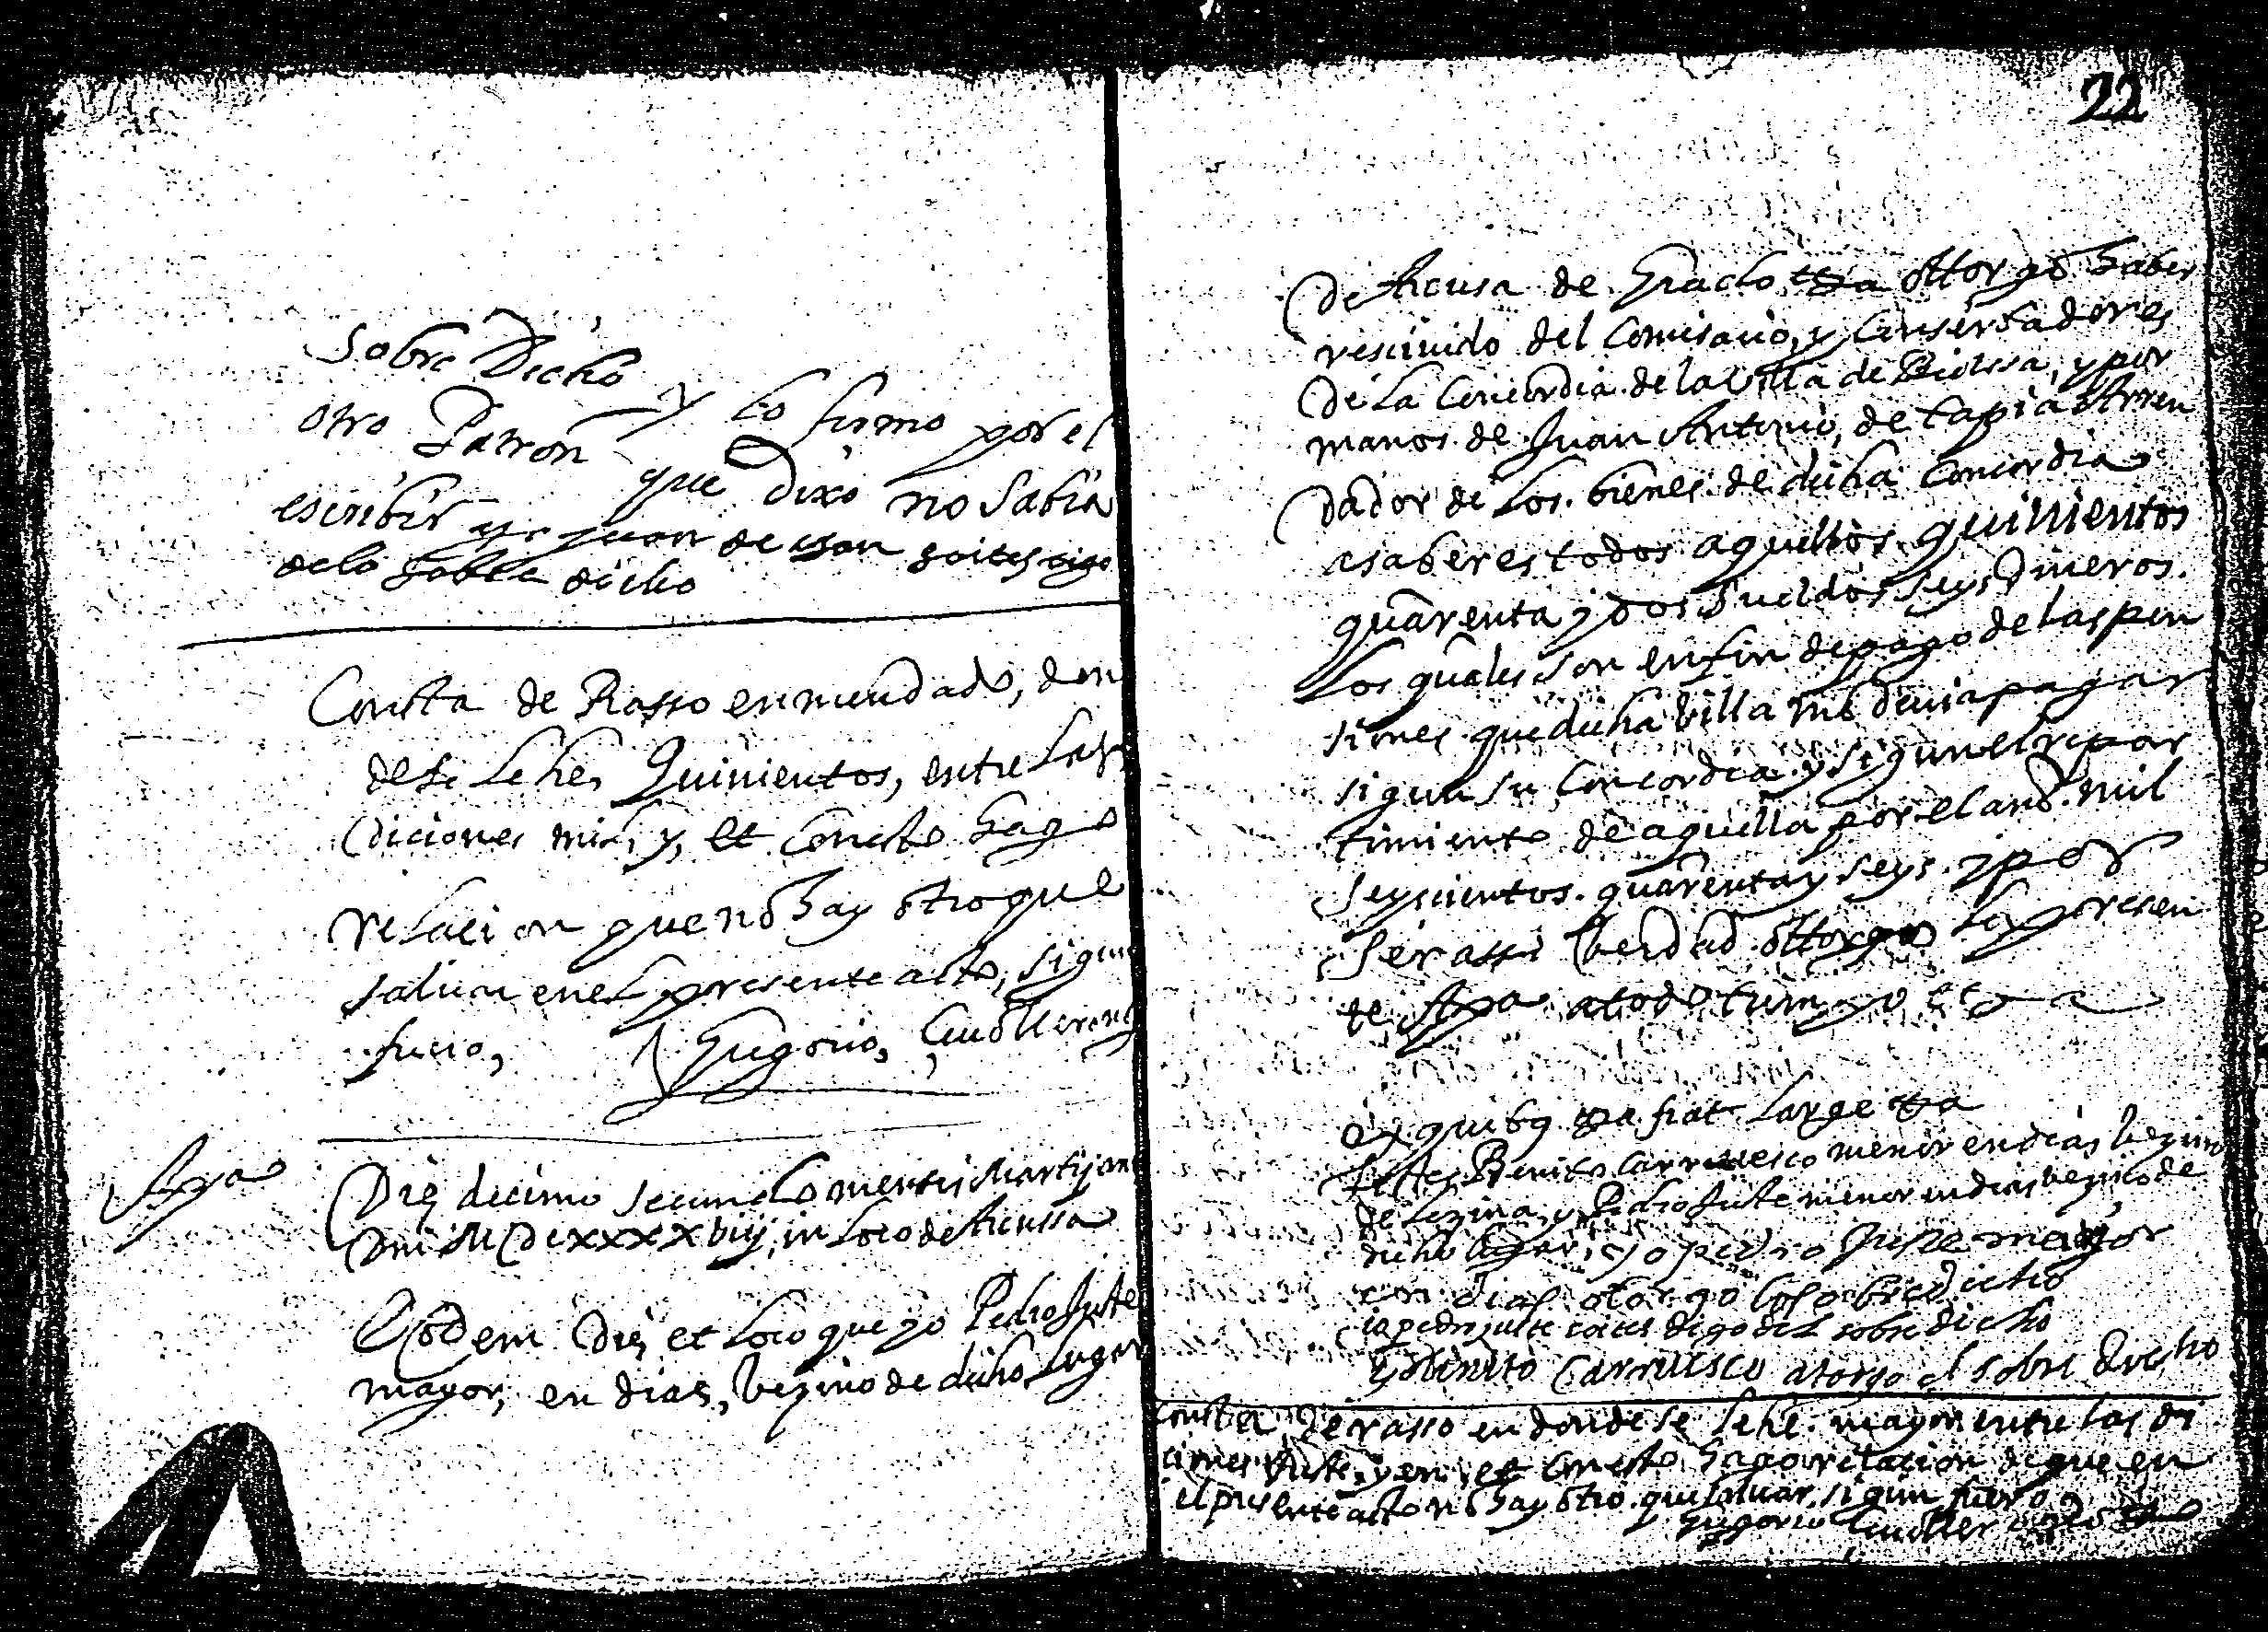 sobre Dicho y lo firmo por el
otro Patron que Dixo no Sabia
escribir yo Juan de
de lo sobre dicho
Consta de Rasso enmendado, don
de se lehe, Quinientos, entre las
diciones mil, y, et Consto hago
relacion que no hay otro que
salvar en el presente acto, sigun
fuero, Gregorio,
Apa
Die decimo secundo mensis Martij anni
in loco de Acussa
Eodem Die et loco que yo Pedro Juste
mayor, en dias, Vezino de dicho lugar
22
De Acusa de Grado otorgo haber
rescivido del Comisario, y Conserbadores
De la Concordia de la Villa de y por
manos de Juan Antonio, de Tapia Arren
dador de los bienes de dicha Concordia
asaber es todos aquellos quinientos
quarenta y dos Sueldos seys Dineros.
Los quales son en fin de pago de las pen
siones que dicha Villa me devia pagar
sigun su Concordia y sigun el repar
timiento de aquella por el año mil
seyscientos quarenta y seys y por
ser assi Verdad otorgo la presen
te Apa a todo tiempo
ex quibus fiat large
Testes Benito Carruesco menor en dias Vezino
de y Pedro Juste menor en dias vezino de
dicho lugar, yo pedro Juste mayor
en dias otorgo lo sobredicho
io pedro juste digo del sobre dicho
yo benito Carruesco atorgo el sobre Dicho
Consta De rasso en donde se lehe mayor entre las di
ciones Juste y en et Consto hago relacion de que en
el presente acto no hay otro que salvar, sigun fuero
Gregorio